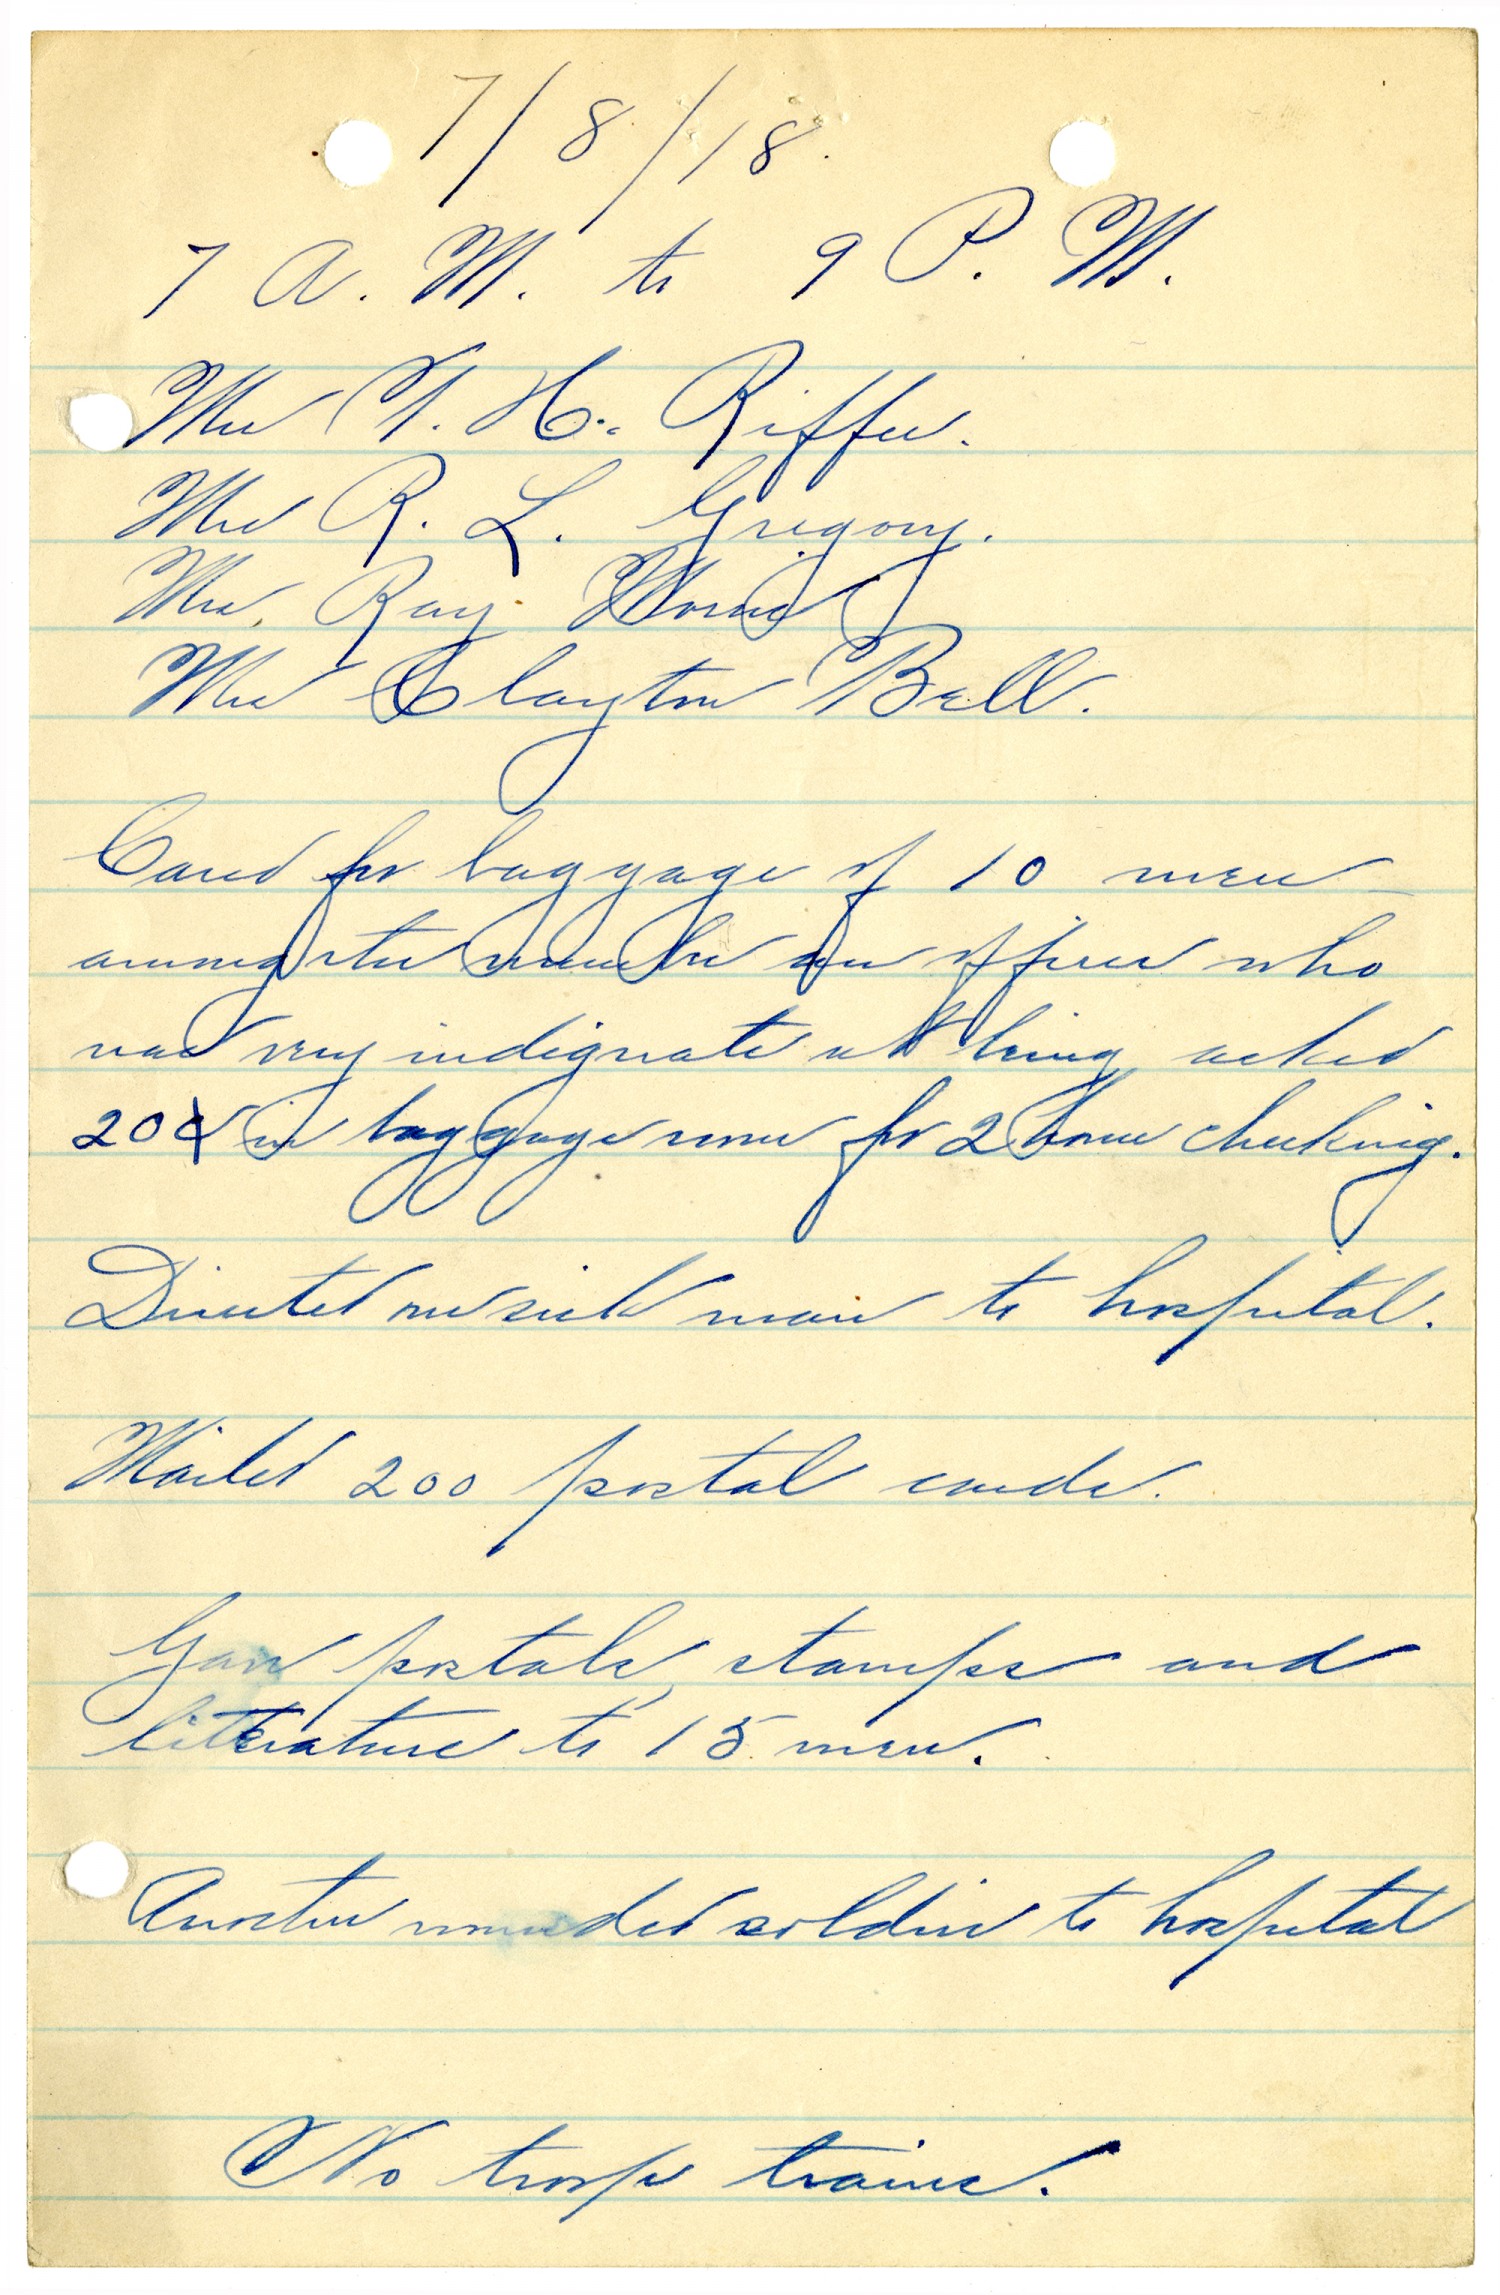 7/8/18.
7 A. M. to 9 P. M.
Mrs H. Riffer.
Mrs R. L. Gregory.
Mrs. Ray
Mrs Clayton Bell.
Cared for baggage of 10 men
among the number an officer who
was very indignate at being asked
20¢ in baggage room for 2 hour checking.
Directed one sick man to hospital.
Mailed 200 postal cards.
Gave postals, stamps and
literature to 15 men.
Another wounded soldier to hospital
No troop trains.